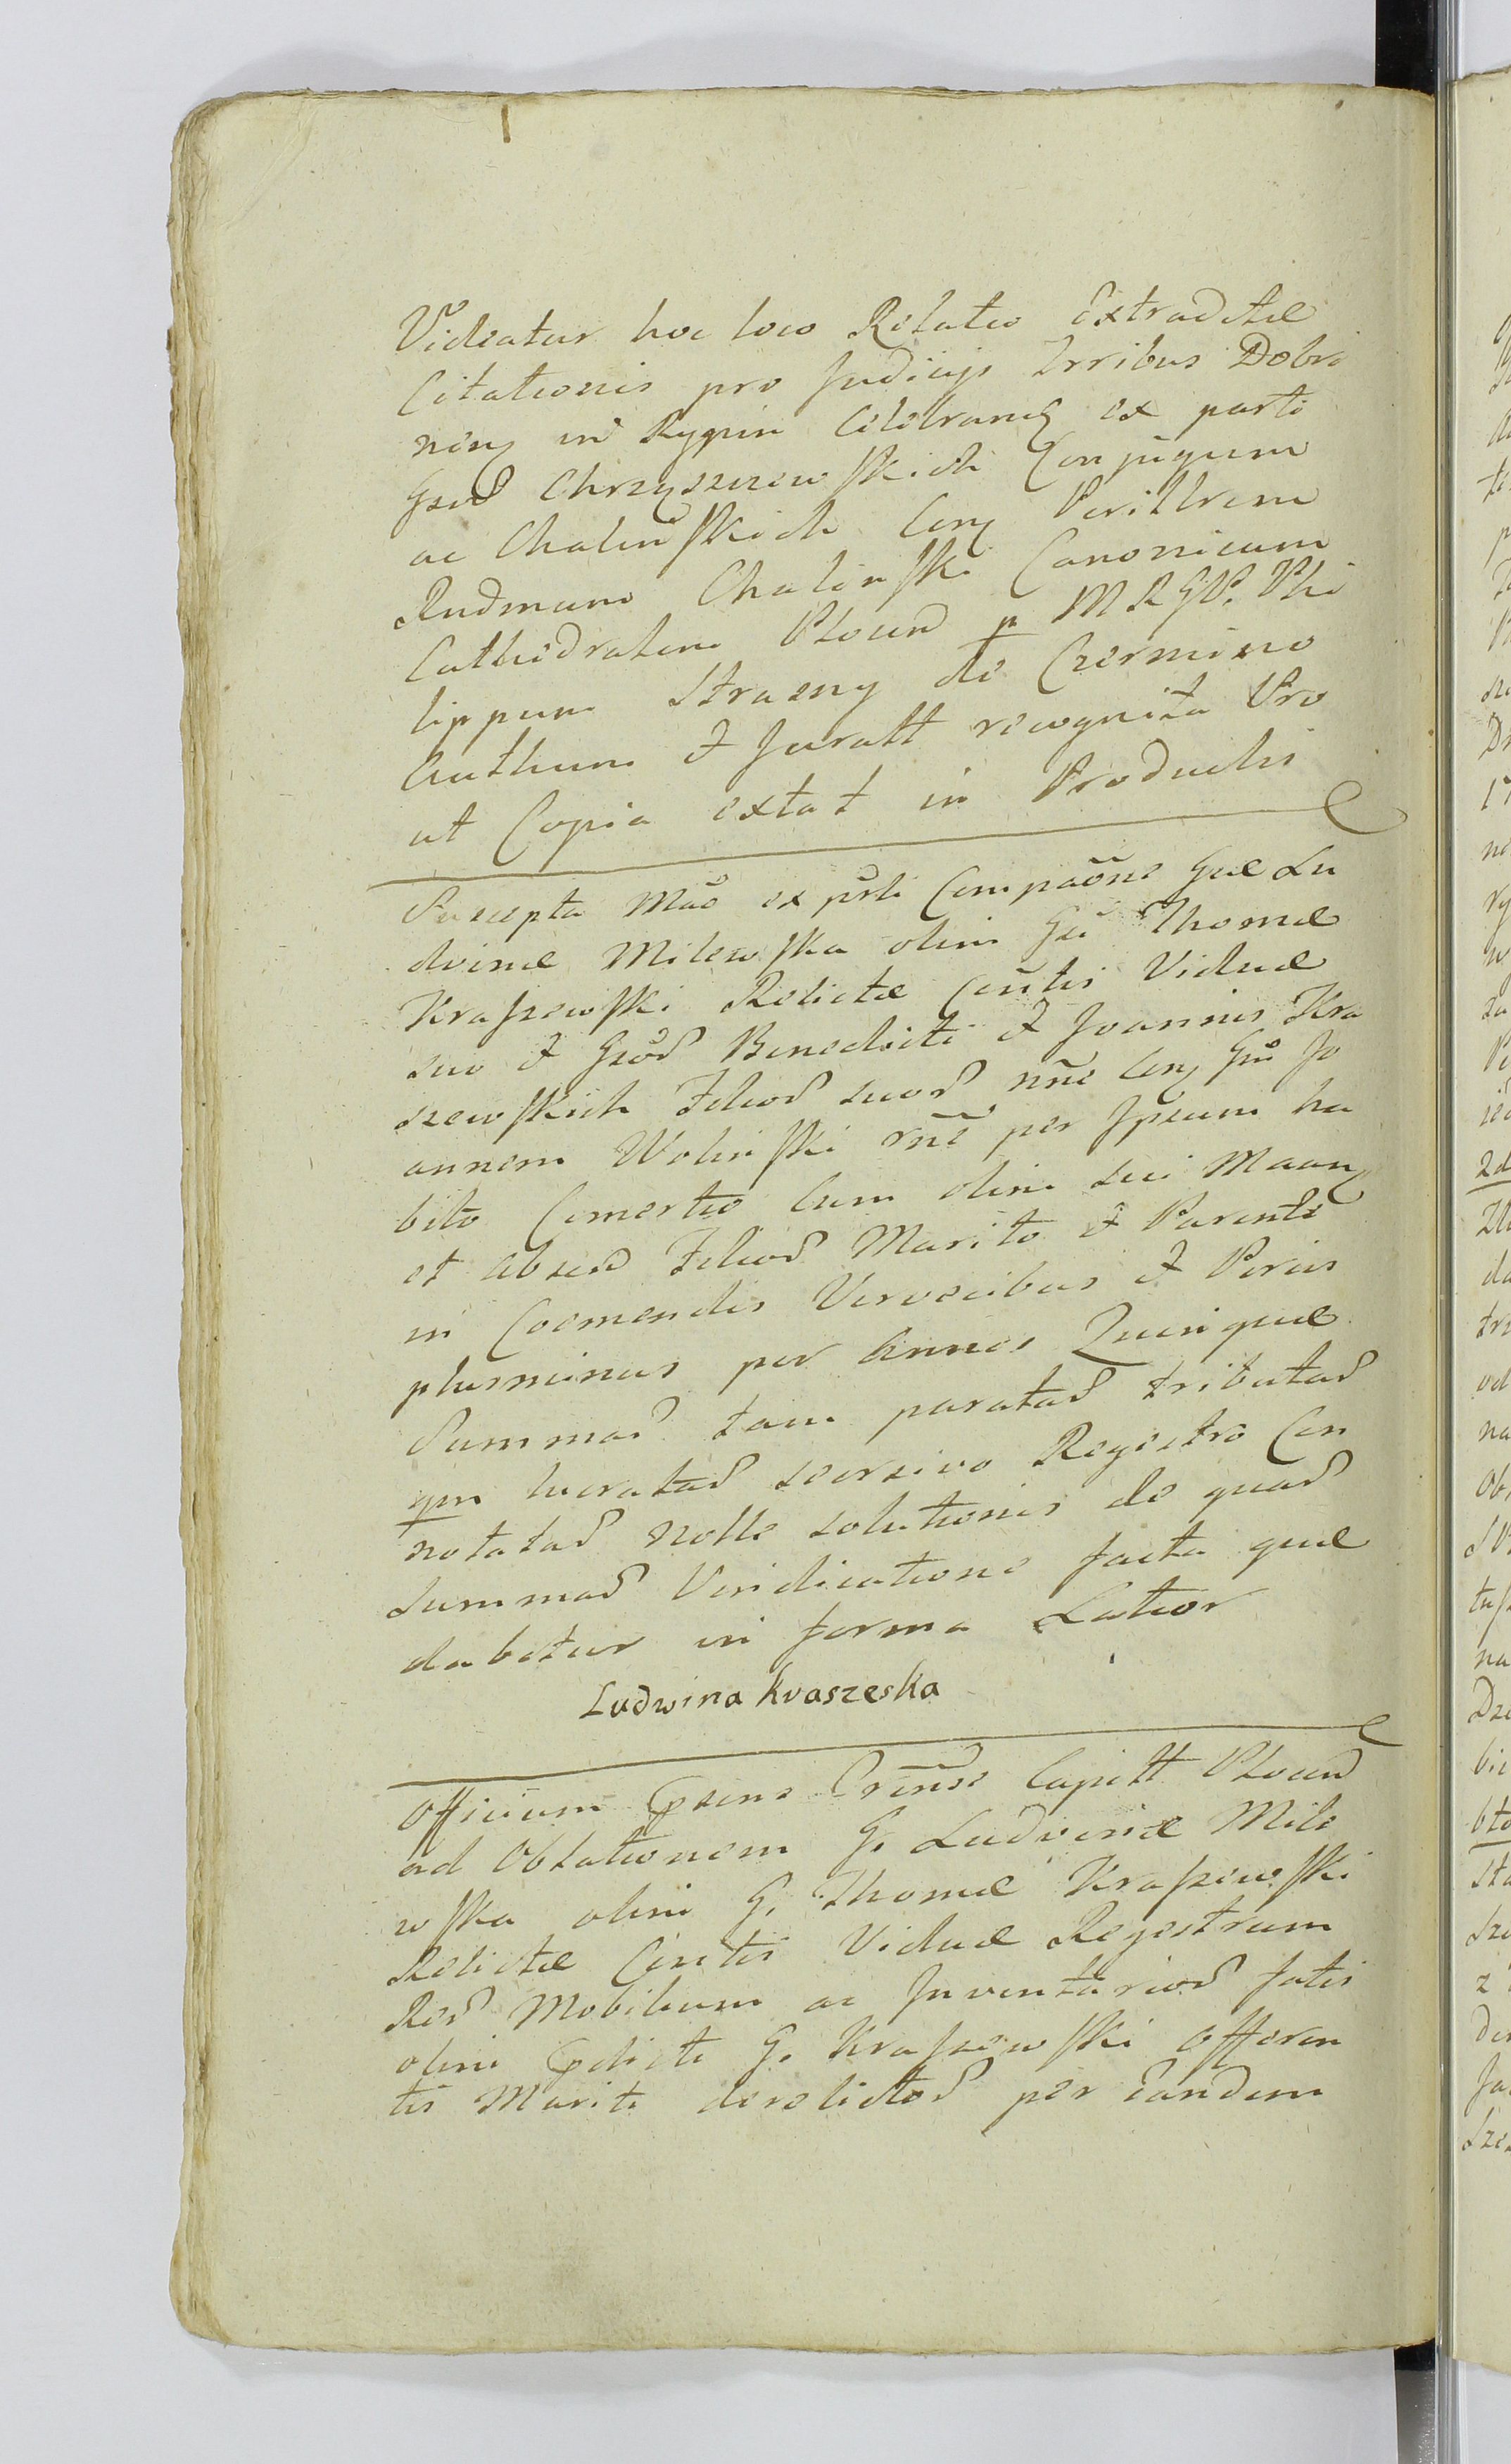 Videatur hoc loco Relatio Extraditæ
Citationis pro Judicijs Trribus Dobri
nen in Rypin Celebran ex parte
Gsod Chrzyszczewskich Conjugum
ac Chalinskich Con Perillrem
Rndmum Chalinski Canonicum
Cathedralem Plocen p MRGP. Phi
lippum Strazny de Czermino
Authum & Juratt recognita Pro
ut Copia extat in Productis
Suscepta Mae ex psti Compaone Gæ Lu
dvinæ Milewska olim Gsi Thomæ
Kraszewski Relictæ Contis Viduæ
suo & Gsod Benedicti & Joannis Kra
szewskich Filiod suod nne Con Gm Jo
annem Wolinski rne per Ipsum ha
bito Comertio cum olim sui Maan
et absen Filiod Marito & Parente
in Coemendis Vervecibus & Porcis
plusminus per Annos Quinque
Summad tam paratad tributad
qm lucratad seorsivo Regestro Con
notatad nolle solutionis de quad
summad Vindicatione facta quæ
dabitur in forma Latior
Ludwina Kraszeska
Officium psens Crense Capitt Plocen
ad Oblationem G. Ludvinæ Mile
wska olim G. Thomæ Kraszewski
Relictæ Contis Viduæ Regestrum
Red Mobilium ac Inventariod fatis
olim pdicti G. Kraszewski Offeren
tis Mariti derelictod per Eandem